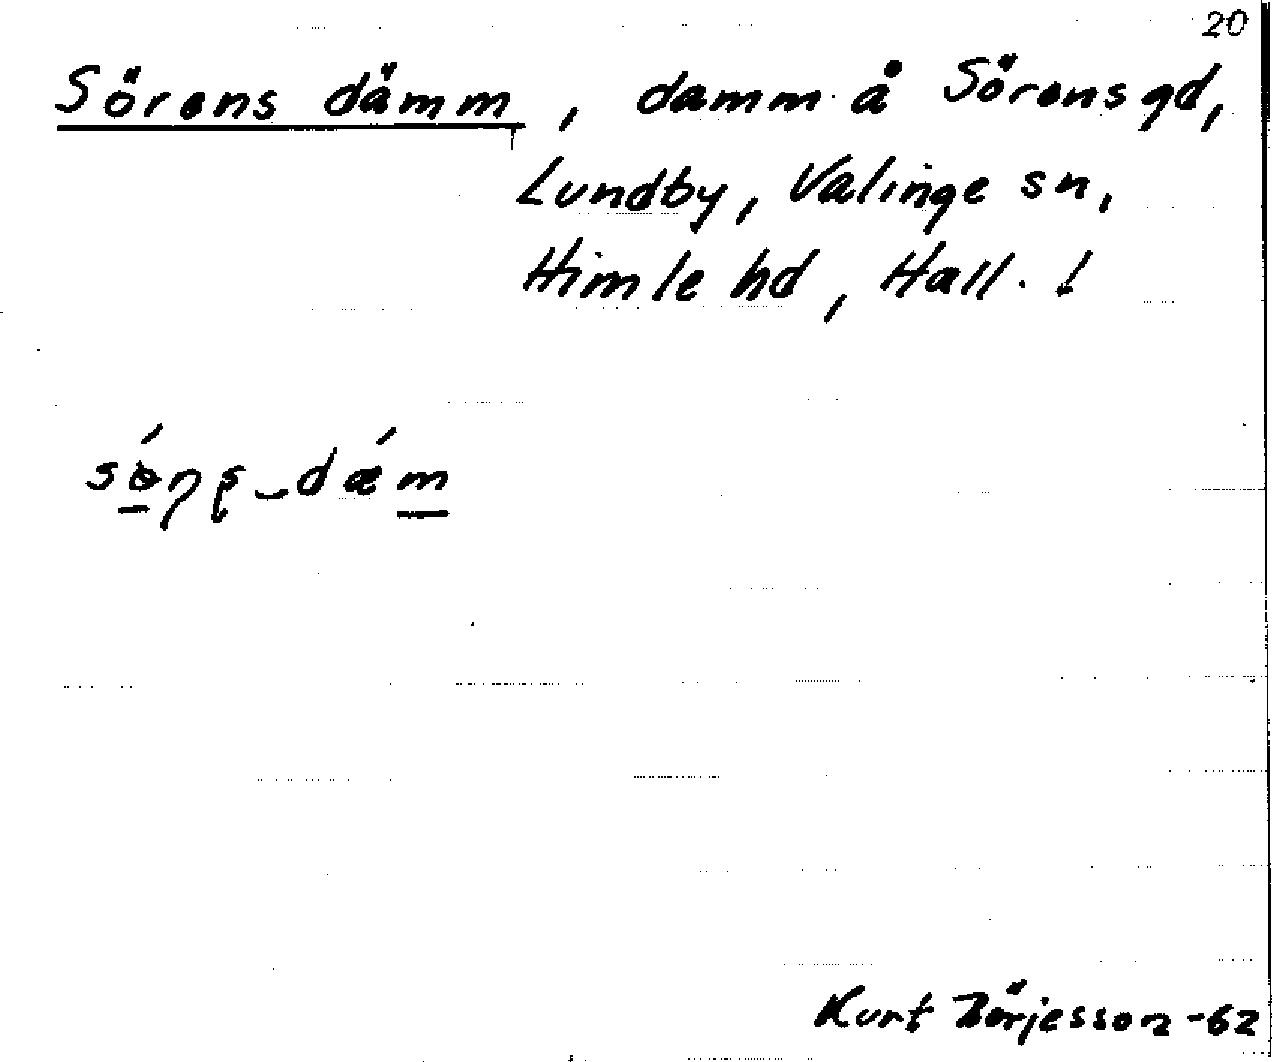 20
Sörens dämm, damm å Sörens gd,
Lundby, Valinge sn,
Himle hd, Hall. !
Kurt Börjesson -62